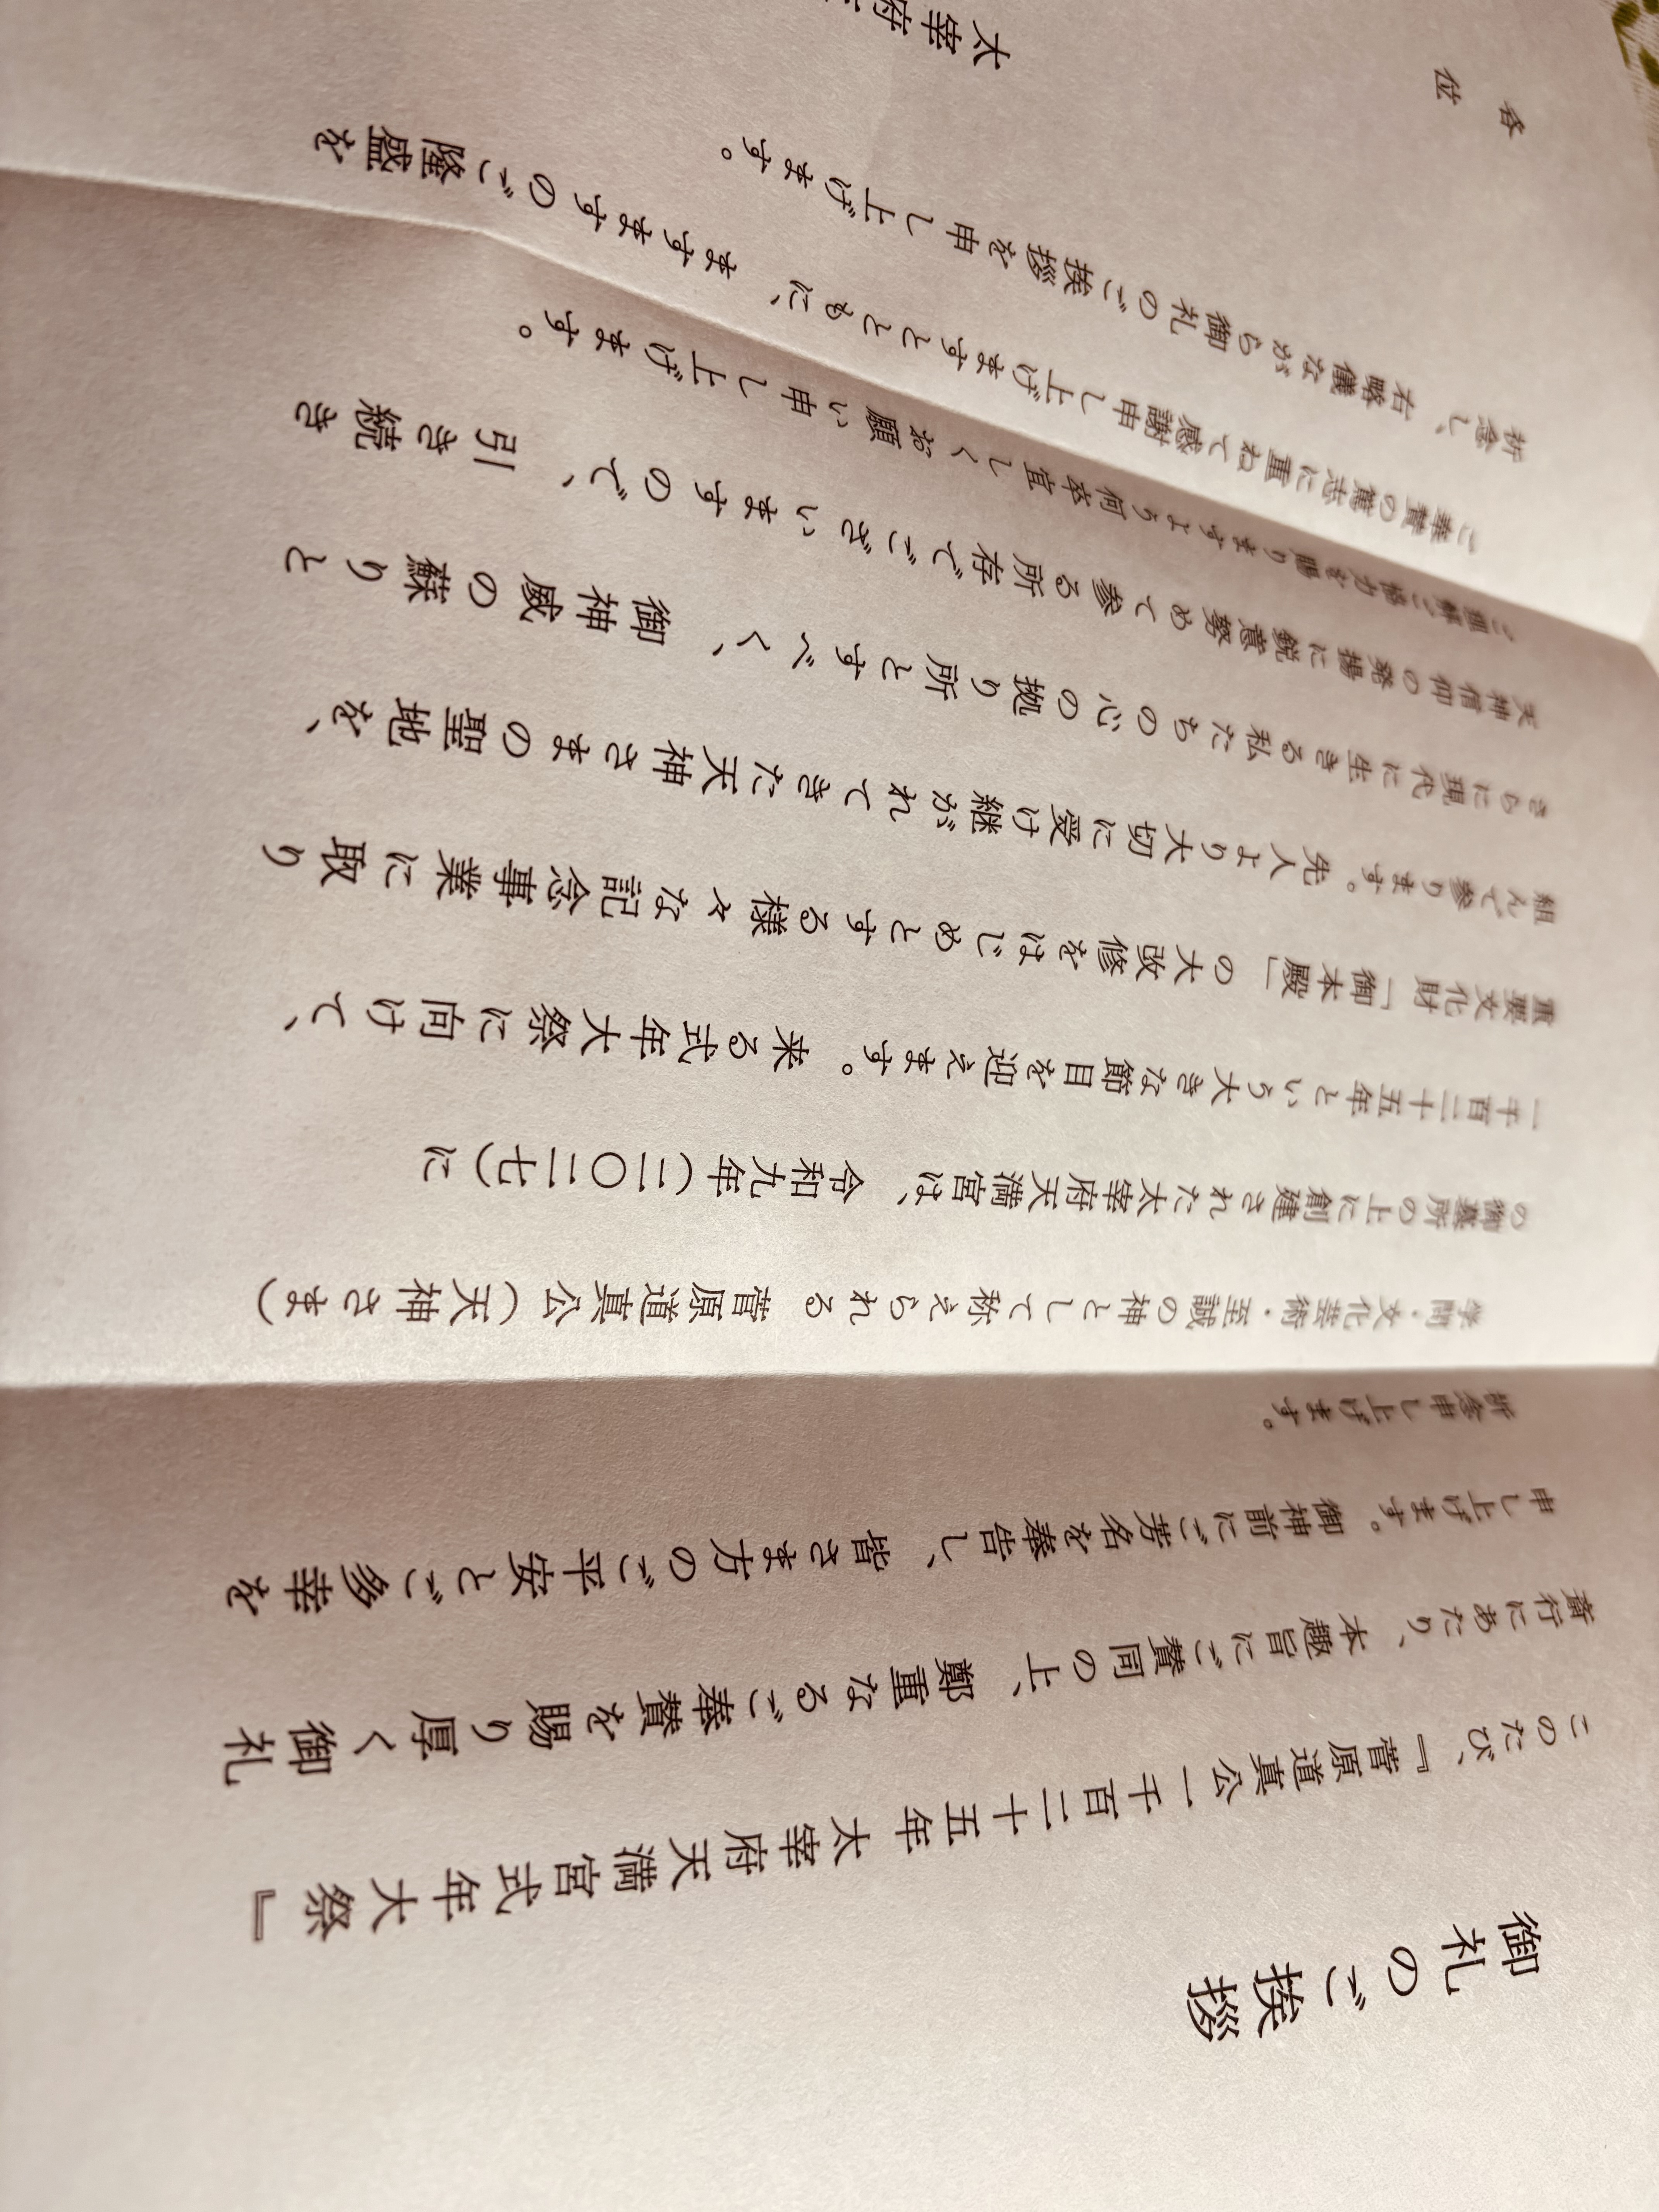 御礼のご挨拶
このたび、『菅原道真公一千百二十五年 太宰府天満宮式年大祭』
斎行にあたり、本趣旨にご賛同の上、鄭重なるご奉賛を賜り厚く御礼
申し上げます。御神前にご芳名を奉告し、皆さま方のご平安とご多幸を
祈念申し上げます。
学問・文化芸術・至誠の神として称えられる 菅原道真公(天神さま)
の御墓所の上に創建された太宰府天満宮は、令和九年(二〇二七)に
一千百二十五年という大きな節目を迎えます。来る式年大祭に向けて、
重要文化財「御本殿」の大改修をはじめとする様々な記念事業に取り
組んで参ります。先人より大切に受け継がれてきた天神さまの聖地を、
さらに現代に生きる私たちの心の拠り所とすべく、御神威の蘇りと
天神信仰の発揚に鋭意努めて参る所存でございますので、引き続き
ご理解ご協力を賜りますよう何卒宜しくお願い申し上げます。
ご奉賛の篤志に重ねて感謝申し上げますとともに、ますますのご隆盛を
祈念し、右略儀ながら御礼のご挨拶を申し上げます。
太宰府
各位